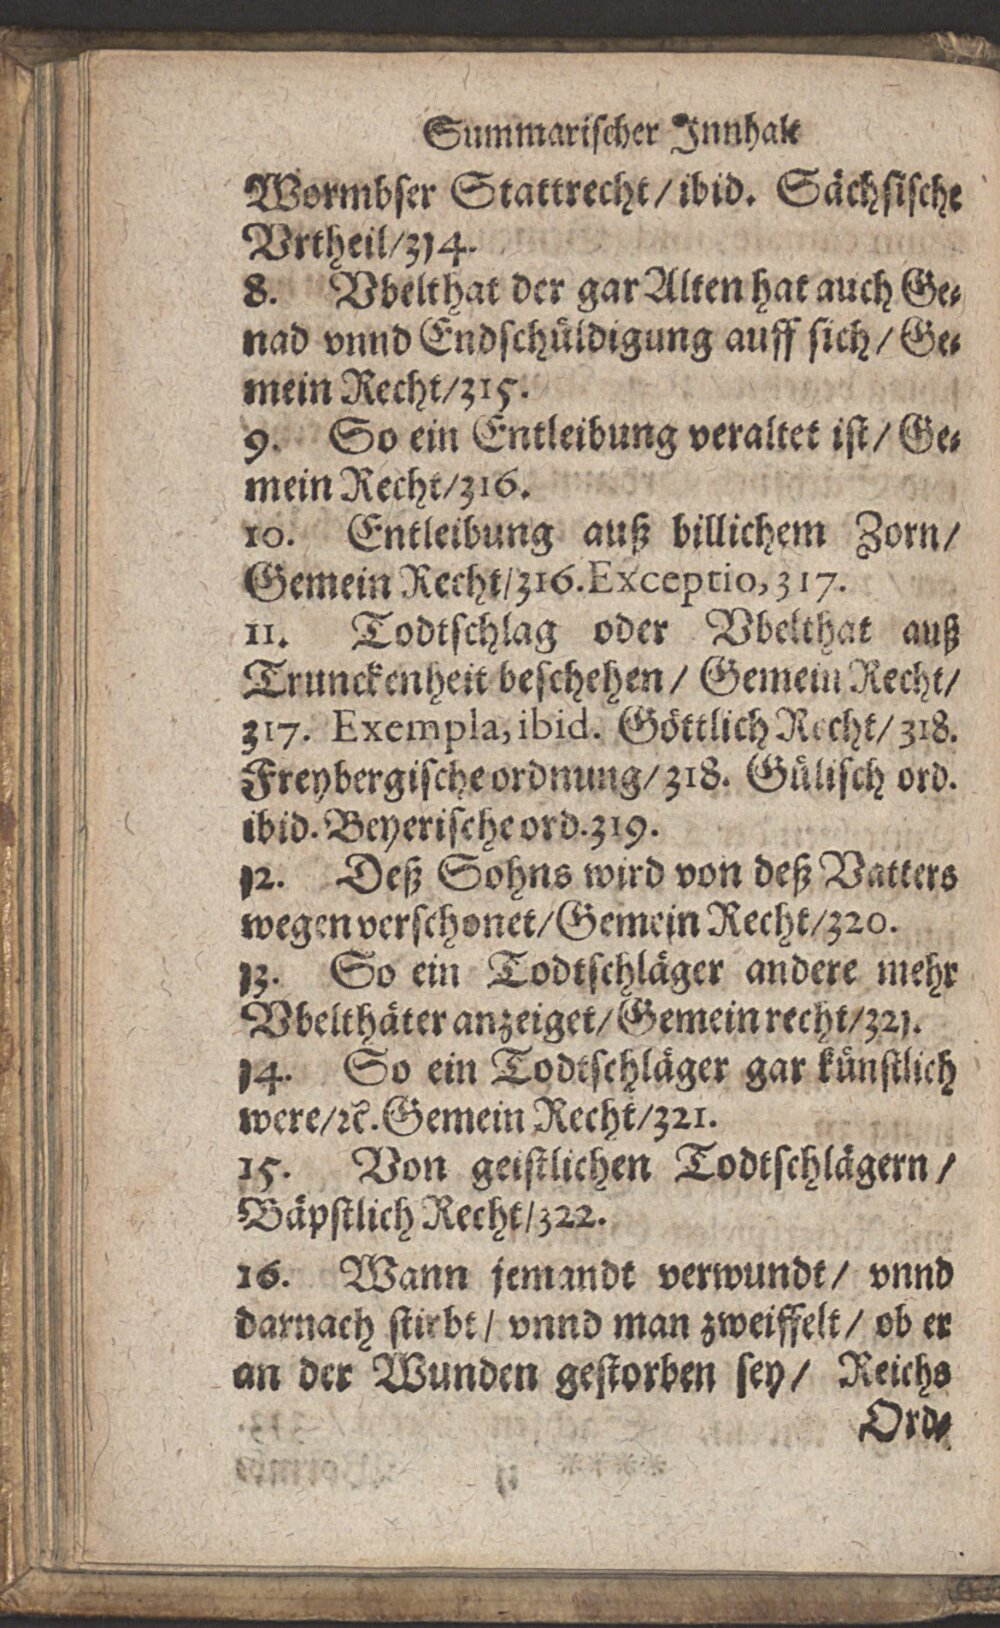 Summarischer Innhalt
Wormbser Stattrecht/ibid. Sächsische
Vrtheil/314.
8. Vbelthat der gar Alten hat auch Ge-
nad vnnd Endschüldigung auff sich/Ge-
mein Recht/315.
9. So ein Entleibung veraltet ist/Ge-
mein Recht/316.
10. Entleibung auß billichem Zorn/
Gemein Recht/316. Exceptio, 317.
11. Todtschlag oder Vbelthat auß
Trunckenheit beschehen/ Gemein Recht/
317. Exempla, ibid. Göttlich Recht/318.
Freybergische ordnung/318. Gülisch ord.
ibid. Beyerische ord. 319.
12. Deß Sohns wird von deß Vatters
wegen verschonet/Gemein Recht/320.
13. So ein Todtschläger andere mehr
Vbelthäter anzeiget/Gemein recht/321.
14. So ein Todtschläger gar künstlich
were/ꝛc. Gemein Recht/321.
15. Von geistlichen Todtschlägern/
Bäpstlich Recht/322.
16. Wann jemandt verwundt/ vnnd
darnach stirbt/ vnnd man zweiffelt/ ob er
an der Wunden gestorben sey/ Reichs
Ord-